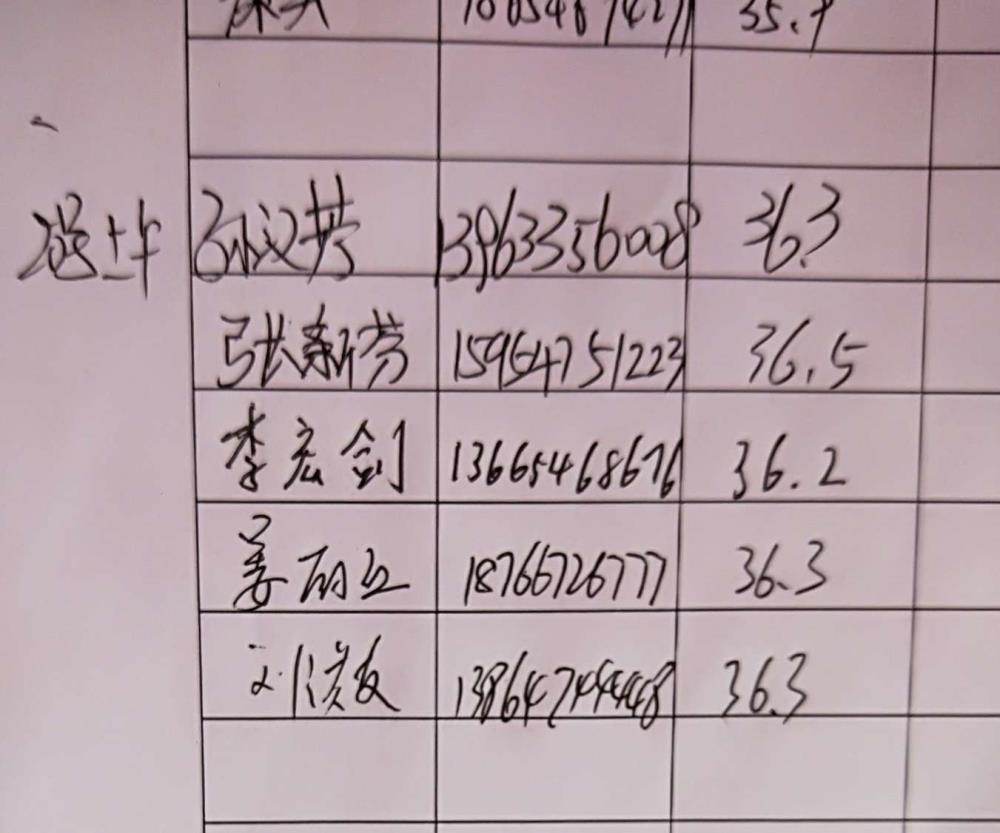 35.9
孙议芳 13963356008 36.3
张新芳 15954751223 36.5
李宏剑 13665468676 36.2
姜丽红 18766726777 36.3
刘洪友 13864744448 36.3